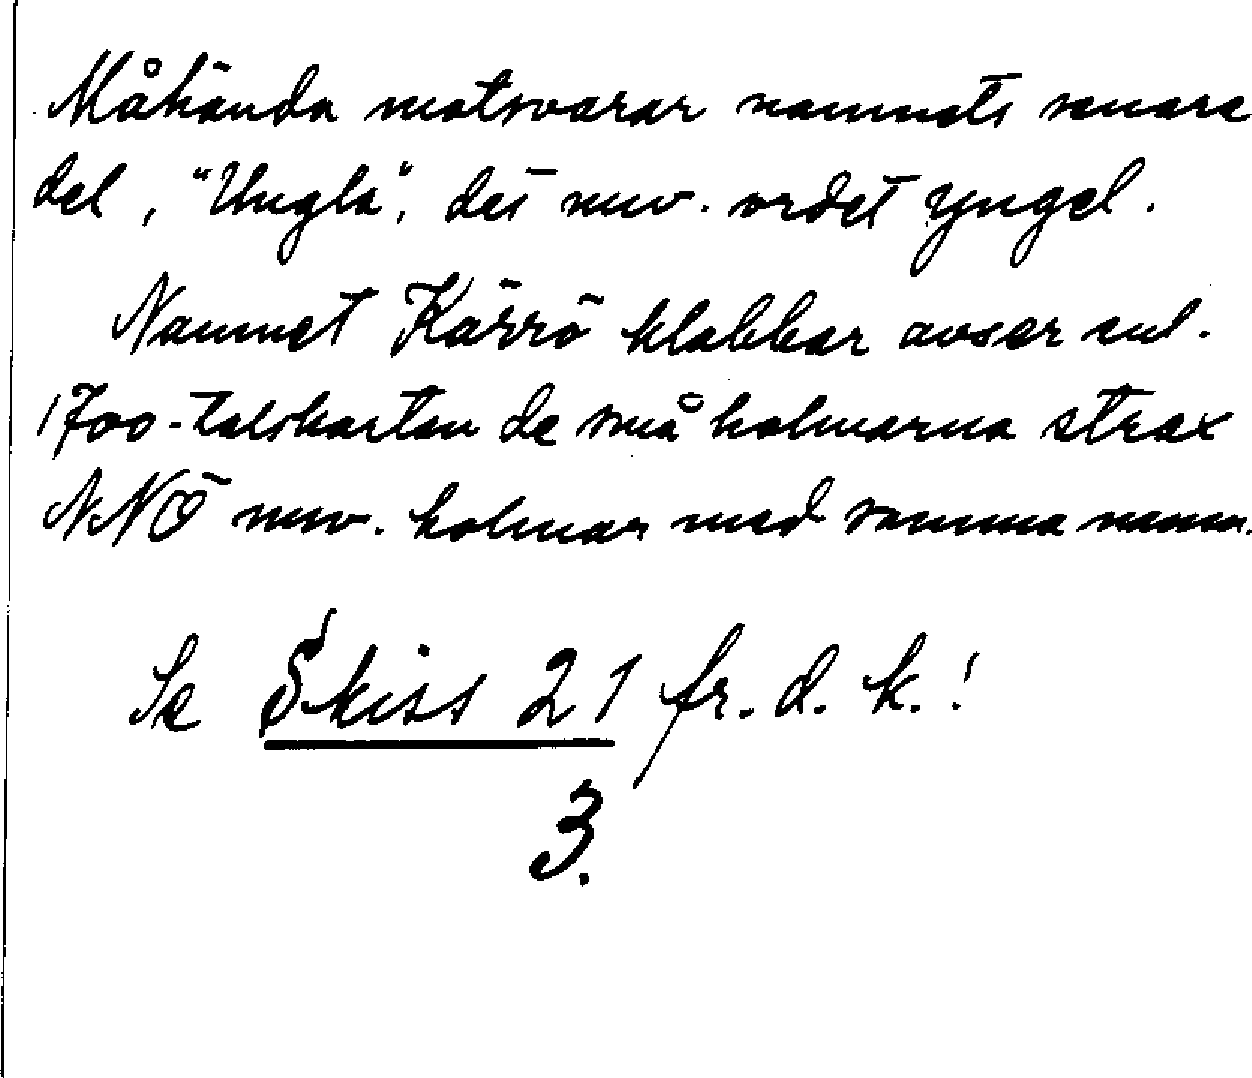 Måhända motsvarar namnets senare
del, "Ungla", det nuv. ordet yngel.
Namnet Kärrö klabbar avser enl.
1700-talskartan de små holmarna strax
NNÖ nuv. holmar med samma namn.
Se Skiss 21 fr. d. k.!
3.